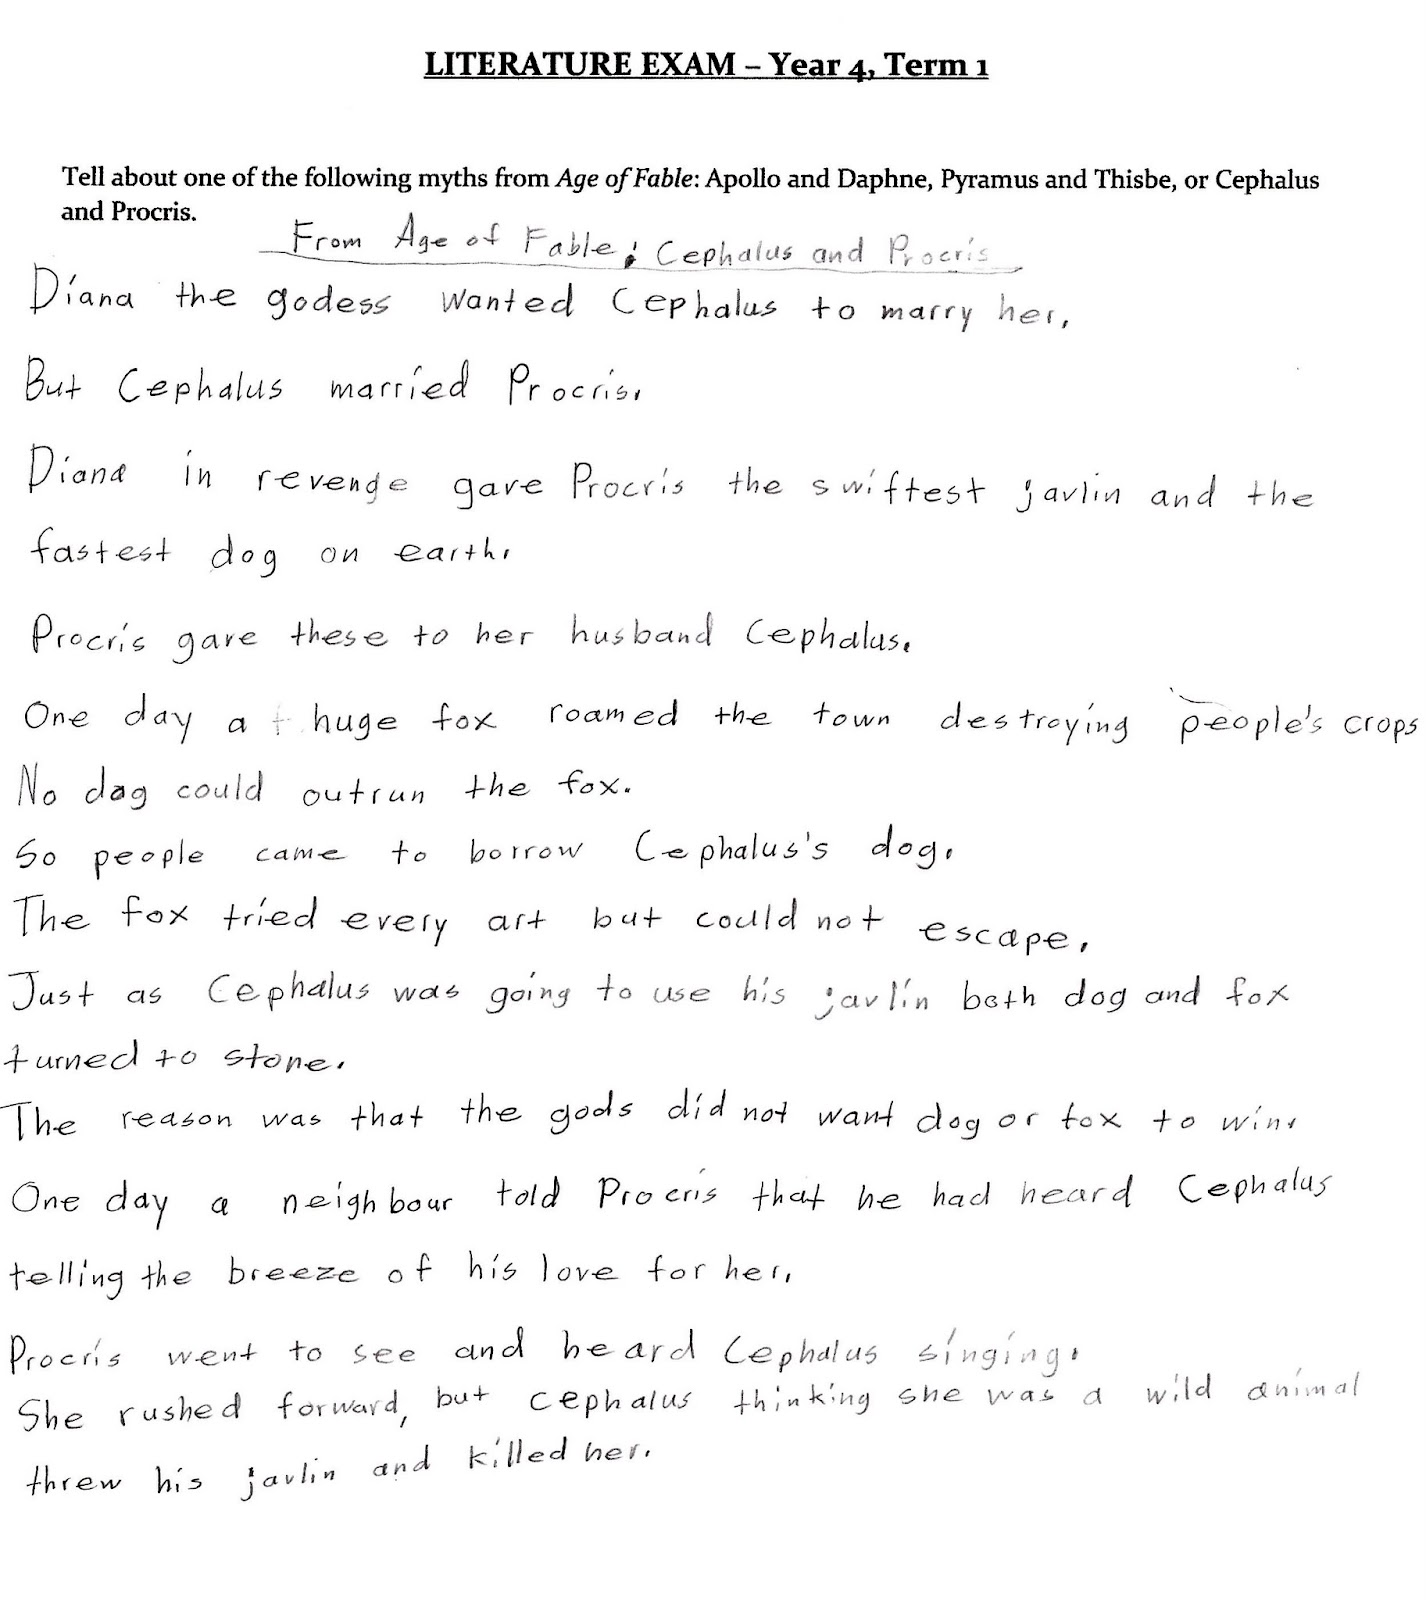 LITERATURE EXAM – Year 4, Term 1
Tell about one of the following myths from Age of Fable: Apollo and Daphne, Pyramus and Thisbe, or Cephalus
and Procris.
From Age of Fable; Cephalus and Procris
Diana the godess wanted Cephalus to marry her.
But Cephalus married Procris.
Diana in revenge gave Procris the swiftest javlin and the
fastest dog on earth.
Procris gave these to her husband Cephalus.
One day a huge fox roamed the town destroying people's crops
No dog could outrun the fox.
So people came to borrow Cephalus's dog.
The fox tried every art but could not escape.
Just as Cephalus was going to use his javlin both dog and fox
turned to stone.
The reason was that the gods did not want dog or fox to win.
One day a neighbour told Procris that he had heard Cephalus
telling the breeze of his love for her.
Procris went to see and heard Cephalus singing.
She rushed forward, but cephalus thinking she was a wild animal
threw his javlin and killed her.